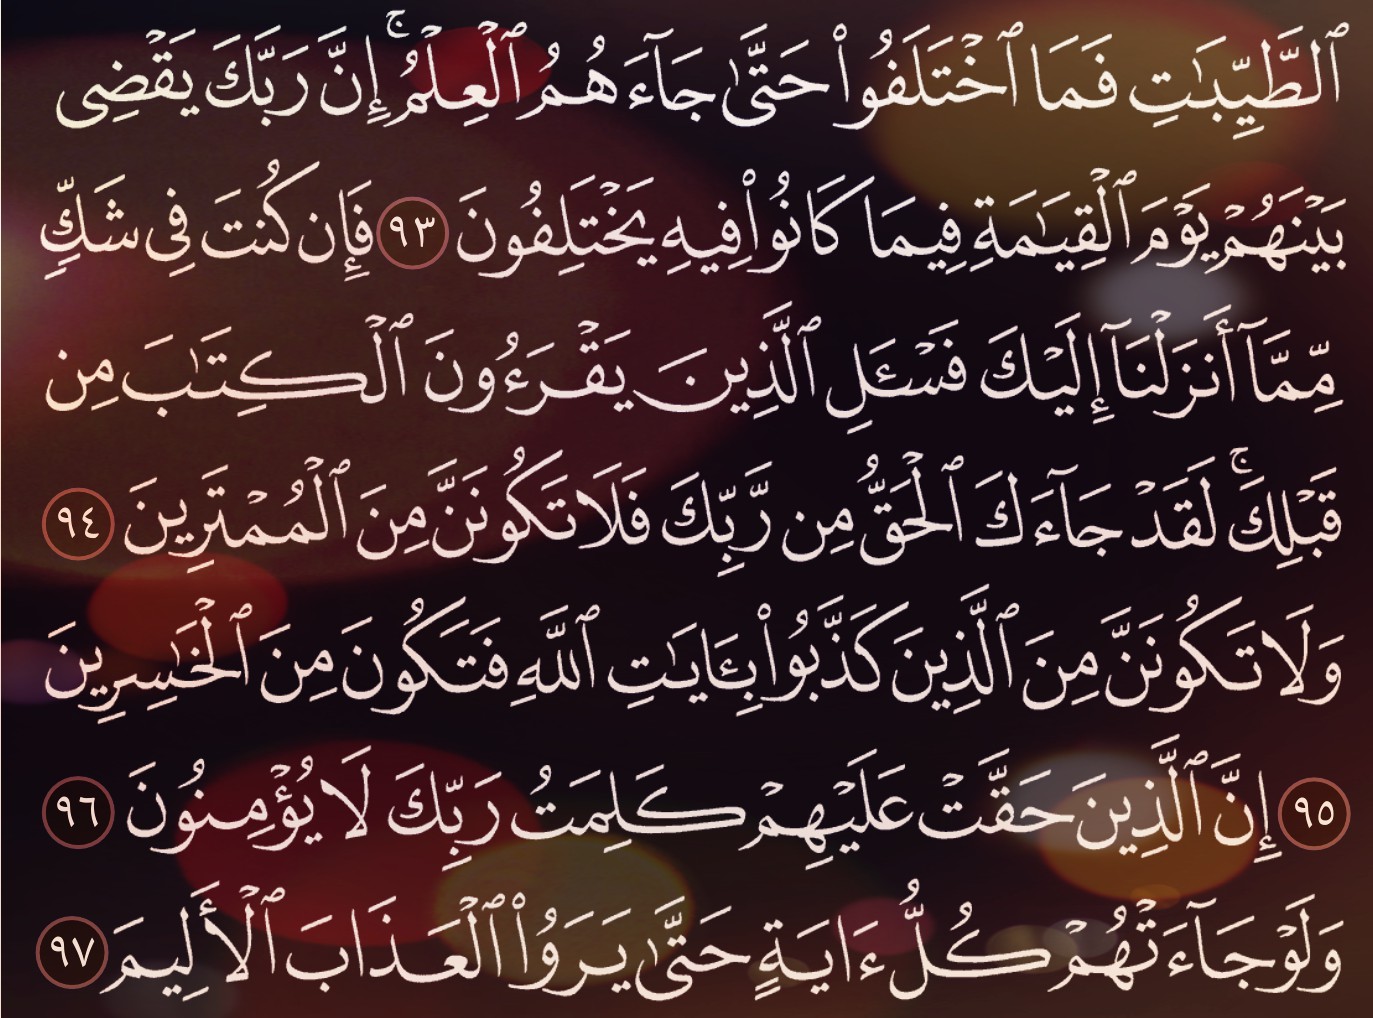 ٱلطَّيِّبَٰتِ فَمَا ٱخْتَلَفُوا۟ حَتَّىٰ جَآءَهُمُ ٱلْعِلْمُ ۚ إِنَّ رَبَّكَ يَقْضِى
بَيْنَهُمْ يَوْمَ ٱلْقِيَٰمَةِ فِيمَا كَانُوا۟ فِيهِ يَخْتَلِفُونَ ٩٣ فَإِن كُنتَ فِى شَكٍّ
مِّمَّآ أَنزَلْنَآ إِلَيْكَ فَسْـَٔلِ ٱلَّذِينَ يَقْرَءُونَ ٱلْكِتَٰبَ مِن
قَبْلِكَ ۚ لَقَدْ جَآءَكَ ٱلْحَقُّ مِن رَّبِّكَ فَلَا تَكُونَنَّ مِنَ ٱلْمُمْتَرِينَ ٩٤
وَلَا تَكُونَنَّ مِنَ ٱلَّذِينَ كَذَّبُوا۟ بِـَٔايَٰتِ ٱللَّهِ فَتَكُونَ مِنَ ٱلْخَٰسِرِينَ
٩٥ إِنَّ ٱلَّذِينَ حَقَّتْ عَلَيْهِمْ كَلِمَتُ رَبِّكَ لَا يُؤْمِنُونَ ٩٦
وَلَوْ جَآءَتْهُمْ كُلُّ ءَايَةٍ حَتَّىٰ يَرَوُا۟ ٱلْعَذَابَ ٱلْأَلِيمَ ٩٧